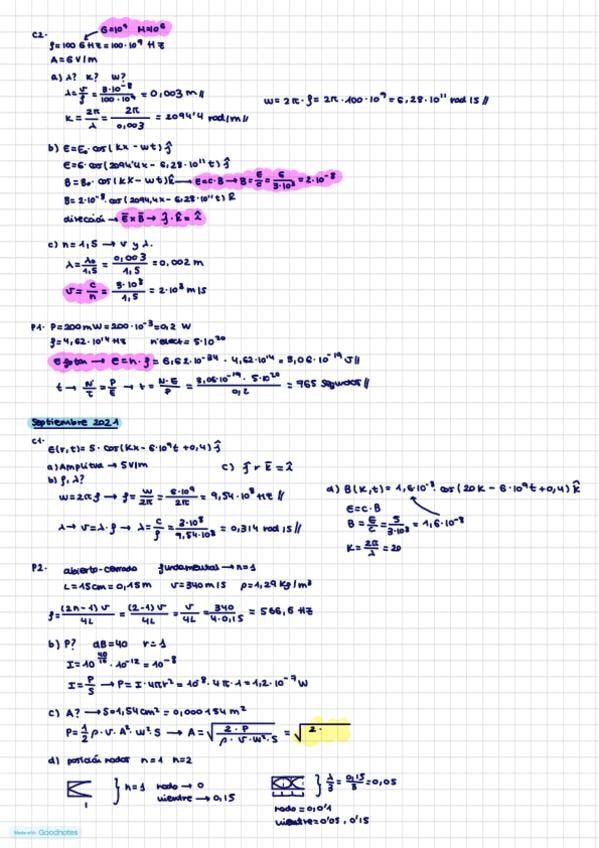 C2.
G=10⁹ M=10⁶
f=100 GHz=100·10⁹ Hz
A=6V/m
a) λ? K? w?
λ=v/f=3·10⁻⁸/100·10⁹=0,003 m//
w=2π·f=2π·100·10⁹=6,28·10¹¹ rad/s//
K=2π/λ=2π/0,003=2094'4 rad/m//
b) E=E₀·cos(Kx-wt)ĵ
E=6·cos(2094'4x-6,28·10¹¹t)ĵ
B=B₀·cos(Kx-wt)k̂ → E=c·B→B=E/c=6/3·10⁸=2·10⁻⁸
B=2·10⁻⁸·cos(2094,4x-6,28·10¹¹t)k̂
dirección→ E̅xB̅→ĵ·k̂=x̂
c) n=1,5→v y λ.
λ=λ₀/1,5=0,003/1,5=0,002m
v=c/n=3·10⁸/1,5=2·10⁸m/s
P1. P=200mW=200·10⁻³=0,2 W
f=4,62·10¹⁴Hz nºelect=5·10²⁰
E foton → E=h·f=6,62·10⁻³⁴·4,62·10¹⁴=3,06·10⁻¹⁹J//
t→N/t=P/E→t=N·E/P=3,06·10⁻¹⁹·5·10²⁰/0,2=765 segundos//
Septiembre 2021
C1.
E(r,t)=5·cos(Kx-6·10⁹t+0,4)ĵ
a)Amplitud→5V/m
c) ĵ r E̅=x̂
b) f,λ?
w=2πf→f=w/2π=6·10⁹/2π=9,54·10⁸Hz//
d) B(K,t)=1,6·10⁻⁸·cos(20K-6·10⁹t+0,4)k̂
E=c·B
B=E/c=5/3·10⁸=1,6·10⁻⁸
λ→v=λ·f→λ=c/f=3·10⁸/9,54·10⁸=0,314 rad/s//
K=2π/λ=20
P2. abierto-cerrado fundamental→n=1
L=15cm=0,15m v=340m/s ρ=1,29Kg/m³
f=(2n-1)v/4L=(2-1)v/4L=v/4L=340/4·0,15=566,6 Hz
b) P? dB=40 r=1
I=10^(40/10)·10⁻¹²=10⁻⁸
I=P/S→P=I·4πr²=10⁻⁸·4π·1=1,2·10⁻⁷W
c) A?→S=1,54cm²=0,000154m²
P=1/2ρ·v·A²·w²·S→A=√(2·P/ρ·v·w²·S)=√2·
d) posición nodos n=1 n=2
}n=1 nodo→0
vientre→0,15
}λ/3=0,15/3=0,05
nodo=0,0'1
vientre=0'05,0'15
Made with Goodnotes